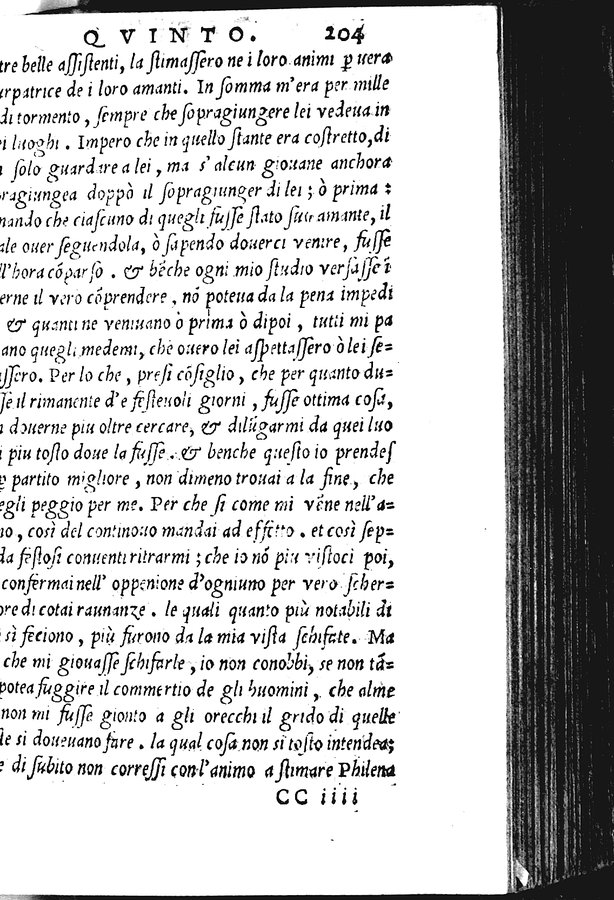 QVINTO. 204
tre belle aſſiſtenti, la ſtimaſſero ne i loro animi ꝑ uera
urpatrice de i loro amanti. In ſomma m'era per mille
di tormento, ſempre che ſopragiungere lei vedeua in
ei luoghi. Impero che in quello ſtante era coſtretto, di
ſolo guardare a lei, ma s'alcun giouane anchora
ragiungea doppò il ſopragiunger di lei; ò prima:
mando che ciaſcuno di quegli fuſſe ſtato ſuo amante, il
ale ouer ſeguendola, ò ſapendo douerci venire, fuſſe
ll'hora cōparſo. & bēche ogni mio ſtudio verſaſſe ī
erne il vero cōprendere, nō poteua da la pena impedi
& quanti ne veniuano ò prima ò dipoi, tutti mi pa
ano quegli medemi, che ouero lei aſpettaſſero ò lei ſe=
aſſero. Per lo che, preſi cōſiglio, che per quanto du=
ſſe il rimanente d'e feſteuoli giorni, fuſſe ottima coſa,
douerne piu oltre cercare, & dilūgarmi da quei luo
i piu toſto doue la fuſſe. & benche queſto io prendeſ
ꝑ partito migliore, non dimeno trouai a la fine, che
egli peggio per me. Per che ſi come mi vēne nell'a=
no, così del continouo mandai ad effetto. et così ſep=
da feſtoſi conuenti ritrarmi; che io nō piu viſtoci poi,
confermai nell' oppenione d'ogniuno per vero ſcher=
ore di cotai raunanze. le quali quanto più notabili di
sì feciono, più furono da la mia viſta ſchifate. Ma
che mi giouaſſe ſchifarle, io non conobbi, se non tā=
potea fuggire il commertio de gli huomini, che alme
non mi fuſſe gionto a gli orecchi il grido di quelle
le si doueuano fare. la qual coſa non si toſto intendea;
e di ſubito non correſſi con l'animo a ſtimare Philena
CC iiii